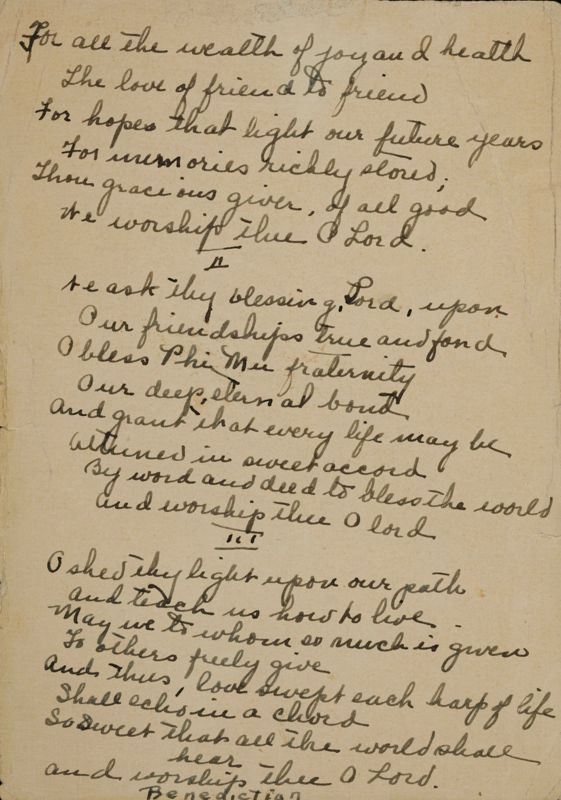 For all the wealth of joy and health
The love of friend to friend
For hopes that light our future years
For memories richly stored;
Thou gracious giver, of all good
We worship thee O Lord.
II
We ask thy blessing, Lord, upon
Our friendships true and fond
O bless Phi Mu fraternity
Our deep, eternal bond
And grant that every life may be
Attuned in sweet accord
By word and deed to bless the world
And worship thee O lord
III
O shed thy light upon our path
And teach us how to live.
May we to whom so much is given
To others freely give
And thus, love swept each harp of life
Shall echo in a chord
So sweet that all the world shall
hear
and worship thee O Lord.
Benediction